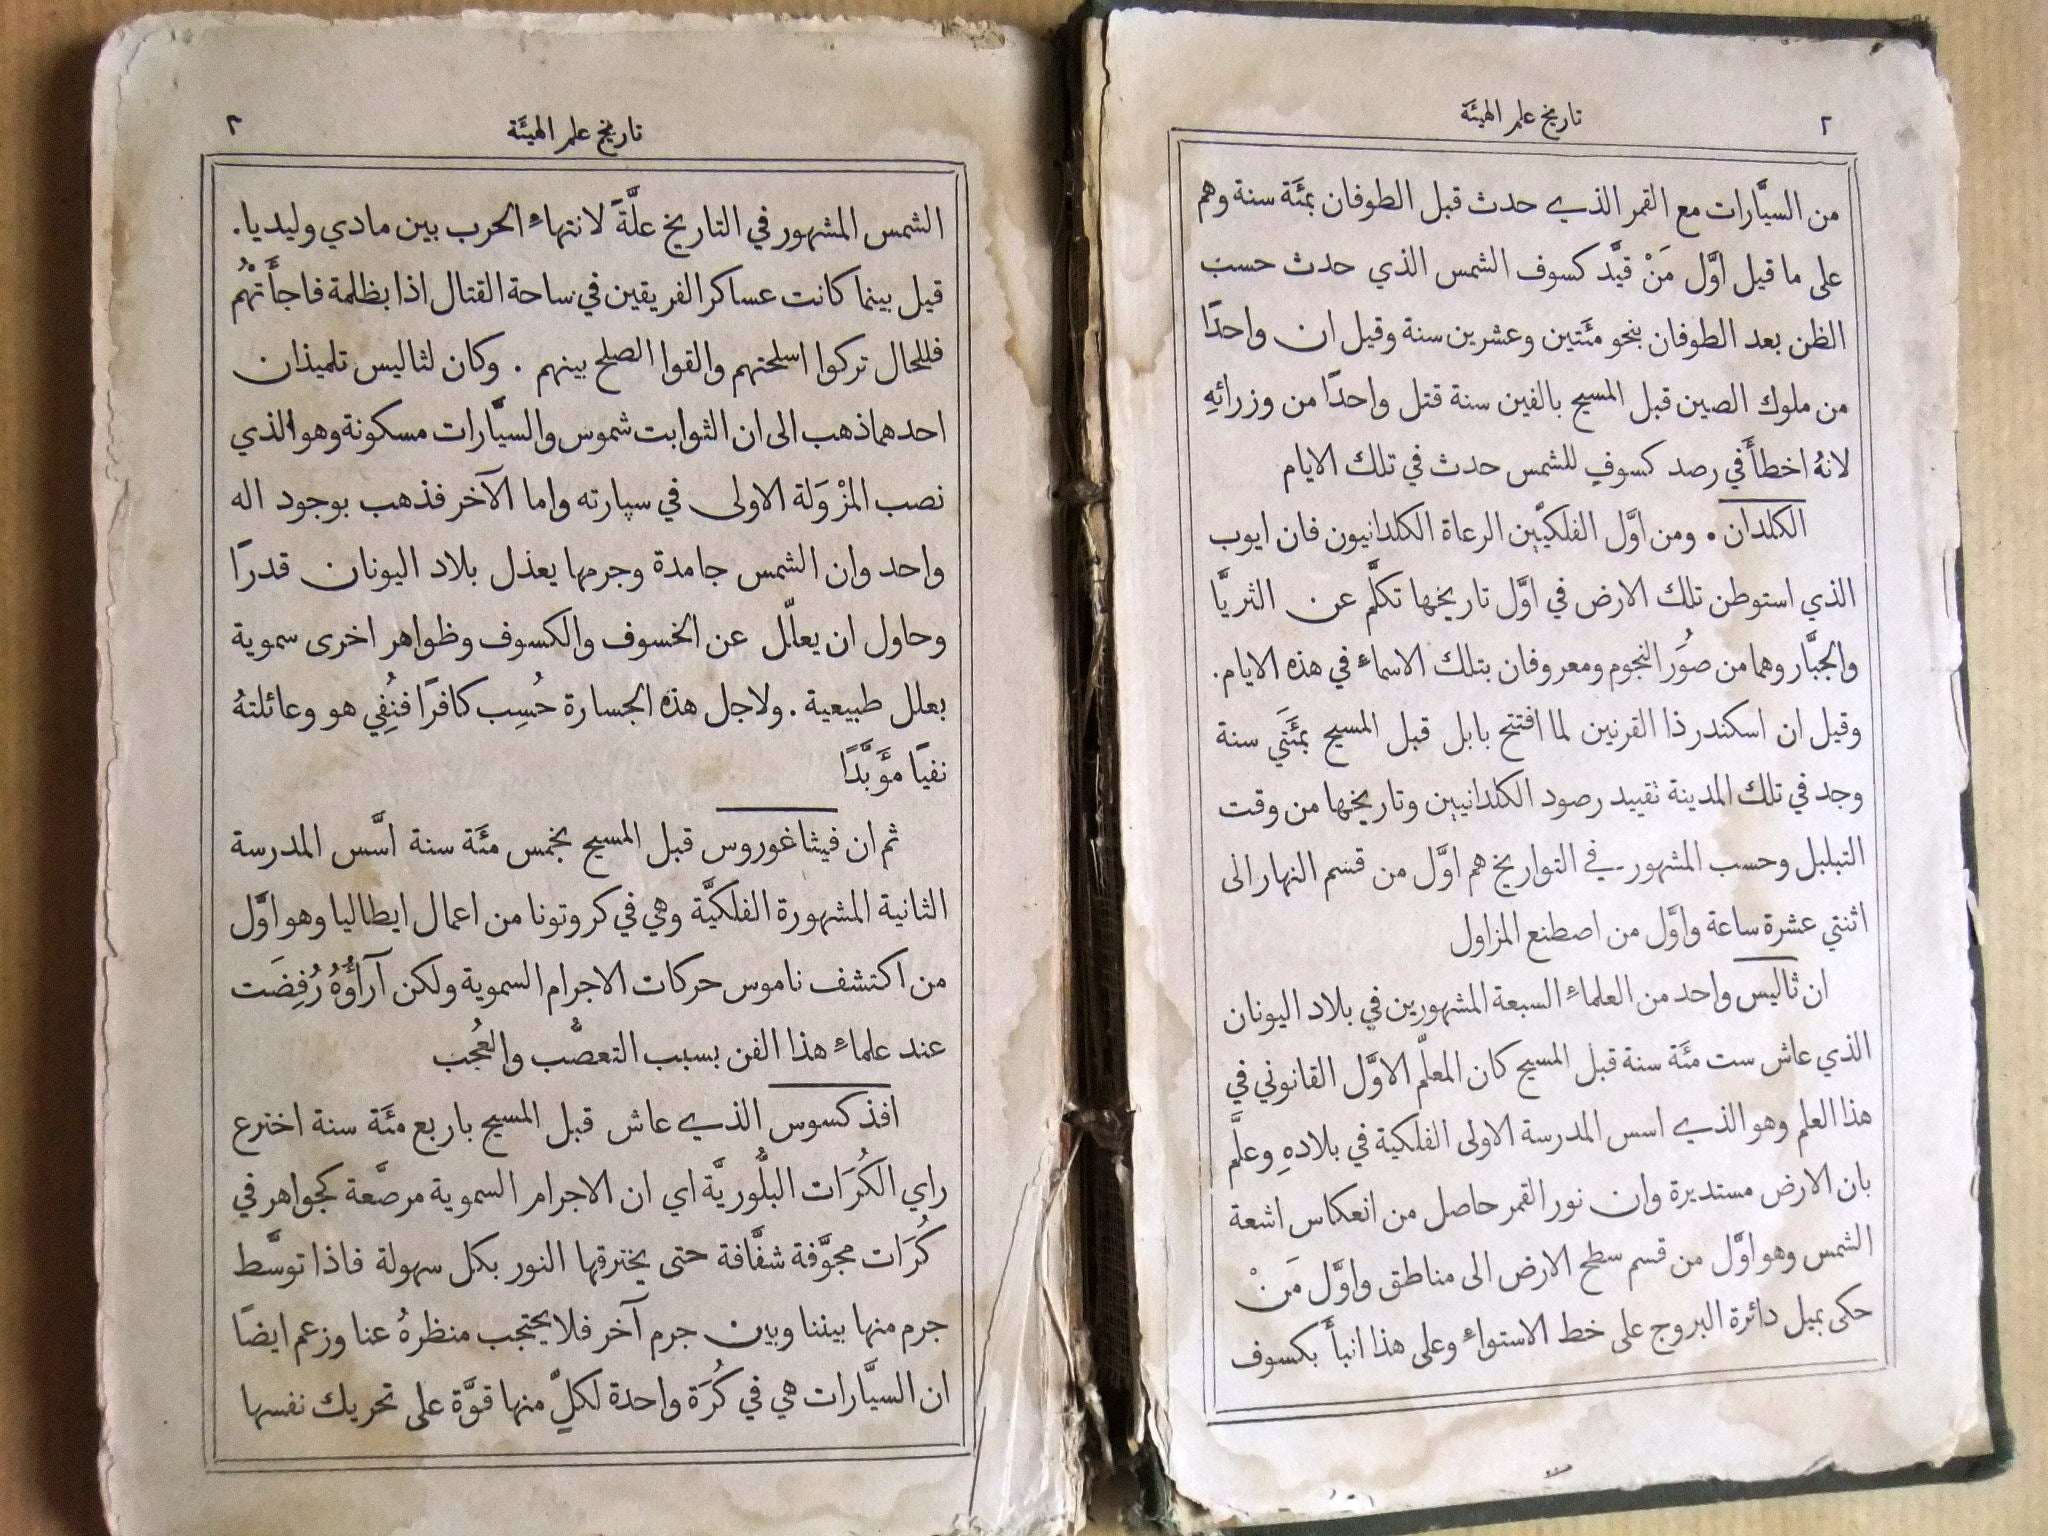 ٢
تاريخ علم الهيئَة
من السيَّارات مع القمر الذي حدث قبل الطوفان بمئَة سنة وهم
على ما قيل اوَّل مَنْ قيَّد كسوف الشمس الذي حدث حسب
الظن بعد الطوفان بنحو مئَتين وعشرين سنة وقيل ان واحدًا
من ملوك الصين قبل المسيح بالفين سنة قتل واحدًا من وزرائهِ
لانهُ اخطأَ في رصد كسوفٍ للشمس حدث في تلك الايام
الكلدان . ومن اوَّل الفلكيّين الرعاة الكلدانيون فان ايوب
الذي استوطن تلك الارض في اوَّل تاريخها تكلَّم عن الثريَّا
والجبَّار وهما من صوَر النجوم ومعروفان بتلك الاسماءِ في هذه الايام.
وقيل ان اسكندر ذا القرنين لما افتتح بابل قبل المسيح بمئَتَي سنة
وجد في تلك المدينة تقييد رصود الكلدانيين وتاريخها من وقت
التبلبل وحسب المشهور في التواريخ هم اوَّل من قسم النهار الى
اثنتي عشرة ساعة واوَّل من اصطنع المزاول
ان ثاليس واحد من العلماءِ السبعة المشهورين في بلاد اليونان
الذي عاش ست مئَة سنة قبل المسيح كان المعلّم الاوَّل القانوني في
هذا العلم وهو الذي اسس المدرسة الاولى الفلكية في بلادهِ وعلَّم
بان الارض مستديرة وان نور القمر حاصل من انعكاس اشعة
الشمس وهو اوَّل من قسم سطح الارض الى مناطق واوَّل مَنْ
حكى بميل دائرة البروج على خط الاستواءِ وعلى هذا انبأَ بكسوف
تاريخ علم الهيئَة
٣
الشمس المشهور في التاريخ علَّةً لانتهاءِ الحرب بين مادي وليديا.
قيل بينما كانت عساكر الفريقين في ساحة القتال اذا بظلمة فاجأَتْهُم
فللحال تركوا اسلحتهم والقوا الصلح بينهم . وكان لثاليس تلميذان
احدهما ذهب الى ان الثوابت شموس والسيَّارات مسكونة وهو الذي
نصب المزْوَلة الاولى في سپارته واما الآخر فذهب بوجود اله
واحد وان الشمس جامدة وجرمها يعدل بلاد اليونان قدرًا
وحاول ان يعلّل عن الخسوف والكسوف وظواهر اخرى سموية
بعلل طبيعية . ولاجل هذه الجسارة حُسِب كافرًا فنُفِي هو وعائلتهُ
نفيًا مؤَبَّدًا
ثم ان فيثاغوروس قبل المسيح بخمس مئَة سنة اسَّس المدرسة
الثانية المشهورة الفلكيَّة وهي في كروتونا من اعمال ايطاليا وهو اوَّل
من اكتشف ناموس حركات الاجرام السموية ولكن آراؤُهُ رُفِضَت
عند علماءِ هذا الفن بسبب التعصُّب والعُجب
افذكسوس الذي عاش قبل المسيح باربع مئَة سنة اخترع
راي الكُرَات البلُّوريَّة اي ان الاجرام السموية مرصَّعة كجواهر في
كُرَات مجوَّفة شفَّافة حتى يخترقها النور بكل سهولة فاذا توسَّط
جرم منها بيننا وبين جرم آخر فلا يحتجب منظرهُ عنا وزعم ايضًا
ان السيَّارات هي في كُرَة واحدة لكلٍّ منها قوَّة على تحريك نفسها